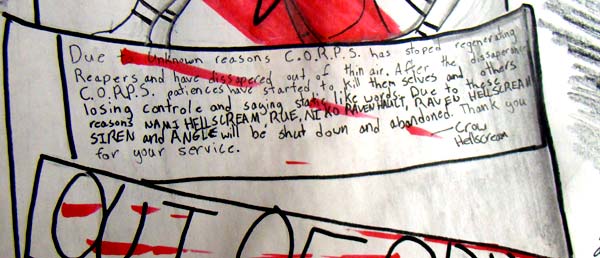 Due to Unknown reasons C.O.R.P.S. has stoped regenerating
Reapers and have dissapered out of thin air. After the dissaperance
C.O.R.P.S. patiences have started to kill them selves and others
losing controle and saying static like words. Due to these
reasons NAMI HELLSCREAM, RUE, NIKO RAVENHALT, RAVEN HELLSCREAM
SIREN and ANGLE will be shut down and abandoned. Thank you
for your service.
— Crow
Hellscream
OUT OF